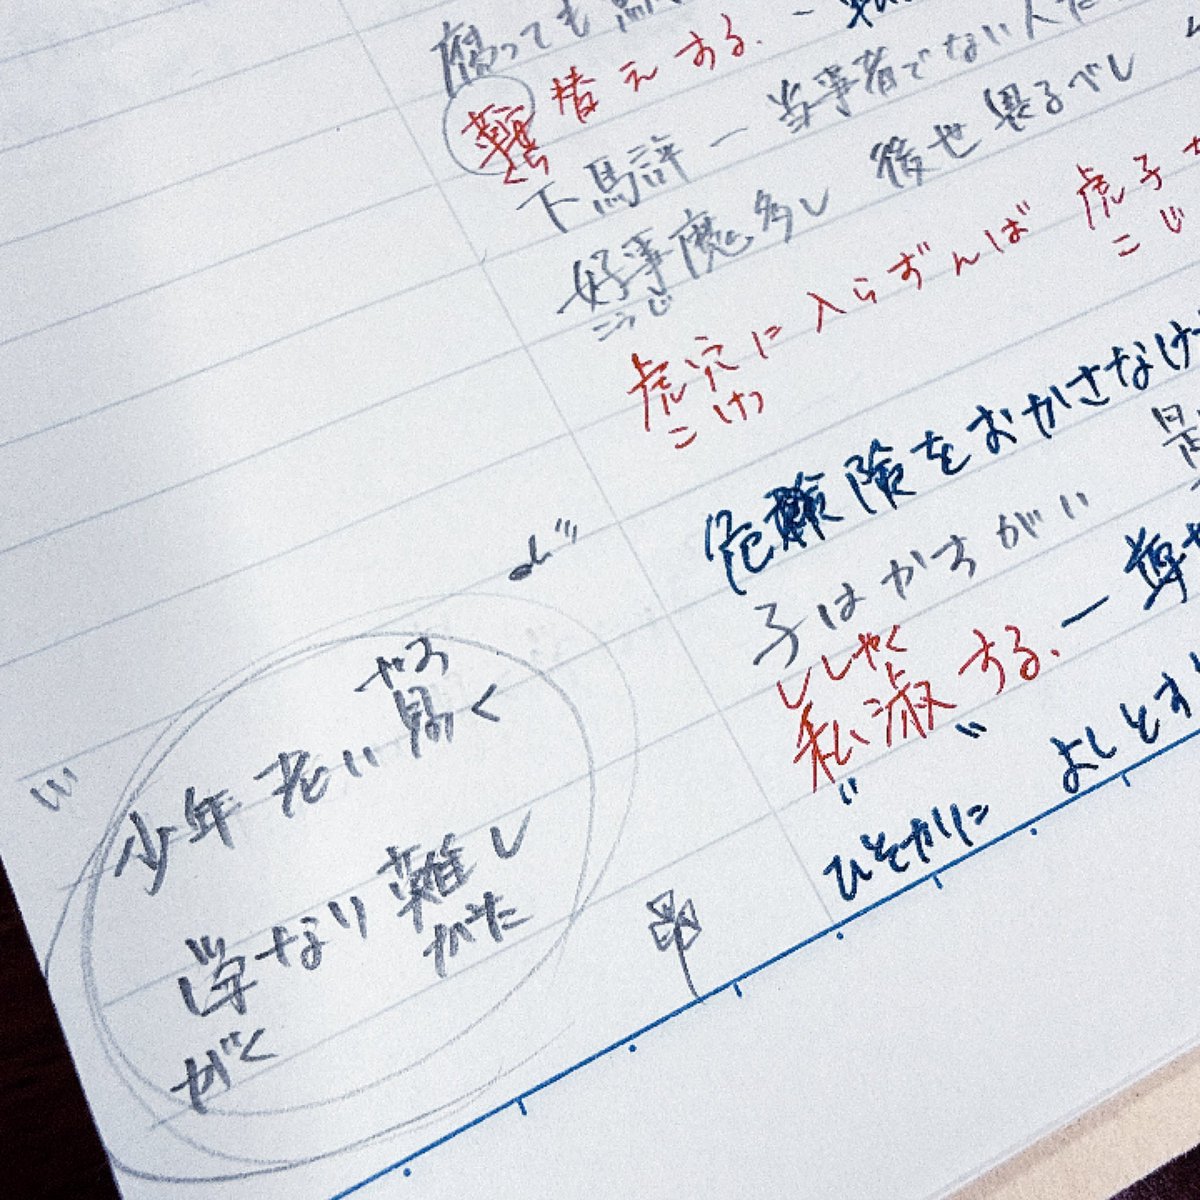 腐っても
鞍替えする. ー
くら
下馬評 ー 当事者でない人た
好事魔多し 後世畏るべし
こうじ
虎穴に入らずんば 虎子
こけつ こじ
危険険をおかさなけ
子はかすがい
ししゅく
私淑する. ー
ひそかに よしとす
やす
少年老い易く
学なり難し
がく がた